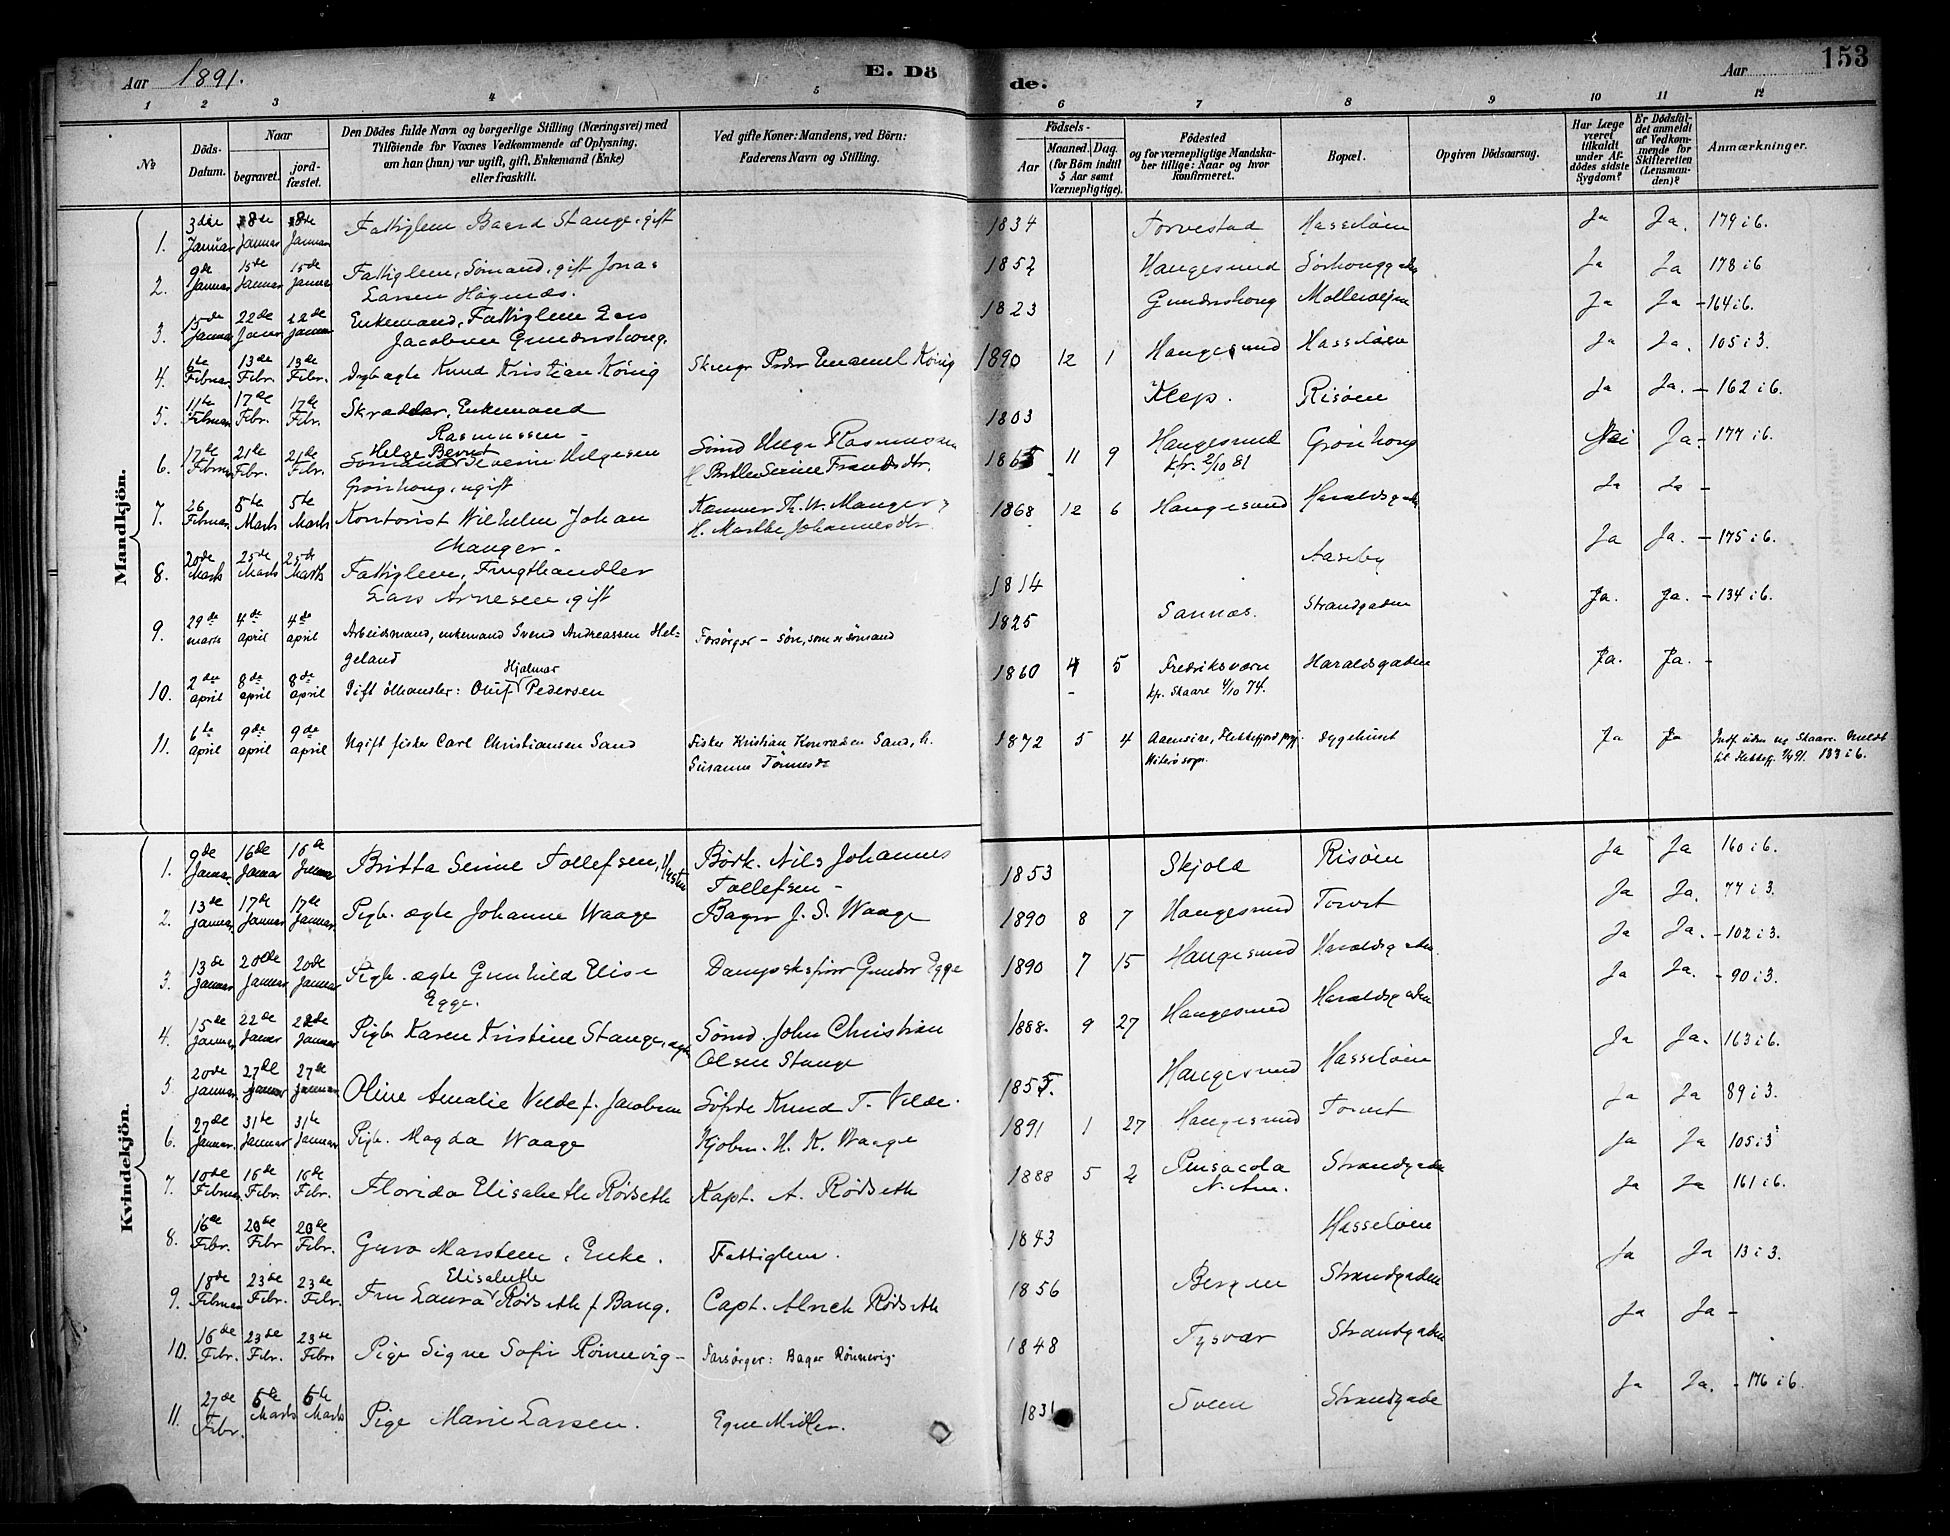 Aar 1891.
E. Dö
de.
Aar
153
1 2 3 4 5 6 7 8 9 10 11 12
No
Döds-Datum.
Naar
begravet.
jordfæstet.
Den Dödes fulde Navn og borgerlige Stilling (Næringsvei) med
Tilföiende for Voxnes Vedkommende af Oplysning,
om han (hun) var ugift, gift, Enkemand (Enke)
eller fraskilt.
Ved gifte Koner: Mandens, ved Börn:
Faderens Navn og Stilling.
Födsels-
Aar
Maaned. Dag.
(for Börn indtil
5 Aar samt
Værnepligtige).
Födested
og for værnepligtige Mandska-
ber tillige: Naar og hvor
konfirmeret.
Bopæl.
Opgiven Dödsaarsag.
Har Læge
været
tilkaldt
under Af-
dödes sidste
Sygdom?
Er Dödsfal-
det anmeldt
af Vedkom-
mende for
Skifteretten
(Lensman-
den)?
Anmærkninger.
Mandkjön.
1. 3die Januar 8de Januar 8de Januar Fattiglem Baard Stange, gift 1834 Torvestad Hasseløen Ja Ja. 179 i 6.
2. 9de Januar 15de Januar 15de Januar Fattiglem, Sømand, gift Jonas 1852 Haugesund Sørhauggaden Ja Ja 178 i 6
Larsen Høgnæs.
3. 15de Januar 22de Januar 22de Januar Enkemand, Fattiglem Lars 1823 Gundershoug Ja Ja - 164 i 6.
Jacobsen Gundershoug.
4. 6te Februar 13de Febr. 13de Febr. Drgb. ægte Knud Kristian König Peder Emanuel König 1890 12 1 Haugesund Hasseløen Ja Ja. 105 i 3.
5. 11te Februar 17de Febr. 17de Febr. Skrædder, Enkemand 1803 Klep. Risøen Ja Ja. - 162 i 6.
Rasmussen -
6. 17de Februar 21de Febr. 21de Febr. Helge Bernt
Sømand Severin Helgesen Sømd Helge Rasmussen 1865 11 9 Haugesund Grønhoug Nei Ja - 177 i 6.
Grønhoug, ugift kfr. 2/10 81
7. 26 Februar 5te Marts 5te Marts Kontorist Wilhelm Johan Th. W. Manger, 1868 12 6 Haugesund Haraldsgaden Ja Ja -
Manger - H. Marthe Johannesdtr.
8. 20de Marts 25de Marts 25de Marts Fattiglem, Frugthandler 1814 Aaseby Ja Ja. - 175 i 6.
Lars Arnesen, gift
9. 29de marts 4de april 4de april Arbeidsmand, enkemand Svend Andreassen Hel- Forsørger - søn, som er sømand 1825 Sannæs. Strandgaden Ja. Ja. - 134 i 6.
geland
10. 2den april 8de april 8de april Gift ølhandler: Oluf Hjalmar Pedersen 1860 4 5 Fredriksværn Haraldsgaden Ja. Ja. -
kfr. Skaare 4/10 74.
11. 6te april 9de april 9de april Ugift fisker Carl Christiansen Sand Fisker Kristian Konradsen Sand, h. 1872 5 4 Aaensire, Flekkefjord Sygehuset Ja Ja Skaare. Meldt
Susanne Tønnesdr Hiterø sogn. til Flekkefj. 133 i 6.
Kvindekjön.
1. 9de Januar 16de Januar 16de Januar Britta Serine Tollefsen, Bødk. Nils Johannes 1853 Skjold Risøen Ja Ja 160 i 6.
Tollefsen -
2. 13de Januar 17de Januar 17de Januar Pigb. ægte Johanne Waage Bager J. S. Waage 1890 8 7 Haugesund Torvet Ja Ja. 77 i 3.
3. 13de Januar 20de Januar 20de Januar Pigb. ægte Gunhild Elise Gunder Egge 1890 7 15 Haugesund Haraldsgaden Ja Ja. - 102 i 3.
Egge.
4. 15de Januar 22de Januar 22de Januar Pigb Karen Kristine Stange, ægte Sømd. John Christian 1888. 9 27 Haugesund Haraldsgaden Ja Ja. - 90 i 3.
Olsen Stange
5. 20de Januar 27de Januar 27de Januar Oline Amalie Velde f. Jacobsen Knud T. Velde. 1855. Haugesund Hasseløen Ja Ja. 163 i 6.
6. 27de Januar. 31te Januar 31te Januar Pigb. Magda Waage Kjøbm. H. K. Waage 1891 1 27 Haugesund Torvet Ja Ja 89 i 3.
7. 10de Februar 16de Febr. 16de Febr. Florida Elisabeth Rødseth Kapt. A. Rødseth 1888 5 2 Pensacola Strandgaden Ja Ja 105 i 3
N. Am.
8. 16de Febr. 20de Febr 20de Febr. Guro Marsteen, Enke. Fattiglem. 1843 Hasseløen Ja Ja 161 i 6.
9. 18de Februar 23de Febr. 23de Febr. Fru Laura Elisabeth Rødseth f Bang. Capt. Alrick Rødseth 1856 Bergen Strandgaden Ja Ja 13 i 3.
10. 16de Febr. 23de Febr. 23de Febr. Pige Signe Sofie Rønnevig - Forsørger: Bager Rönnevig 1848 Tysvær Strandgaden Ja Ja -
11. 27de Febr. 6te Marts 6te Marts Pige Marie Larsen. Egne Midler. 1831 Sveen Strandgade Ja Ja. - 176 i 6.